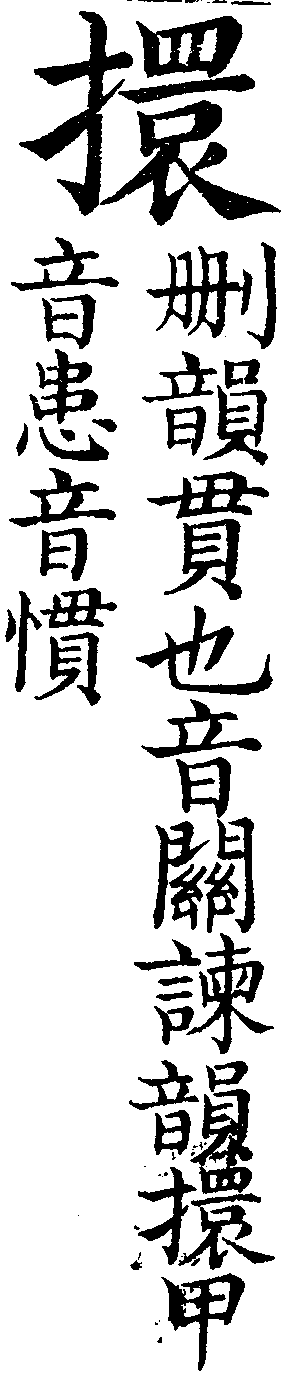 擐
刪韻貫也音關諫韻擐甲
音患音慣